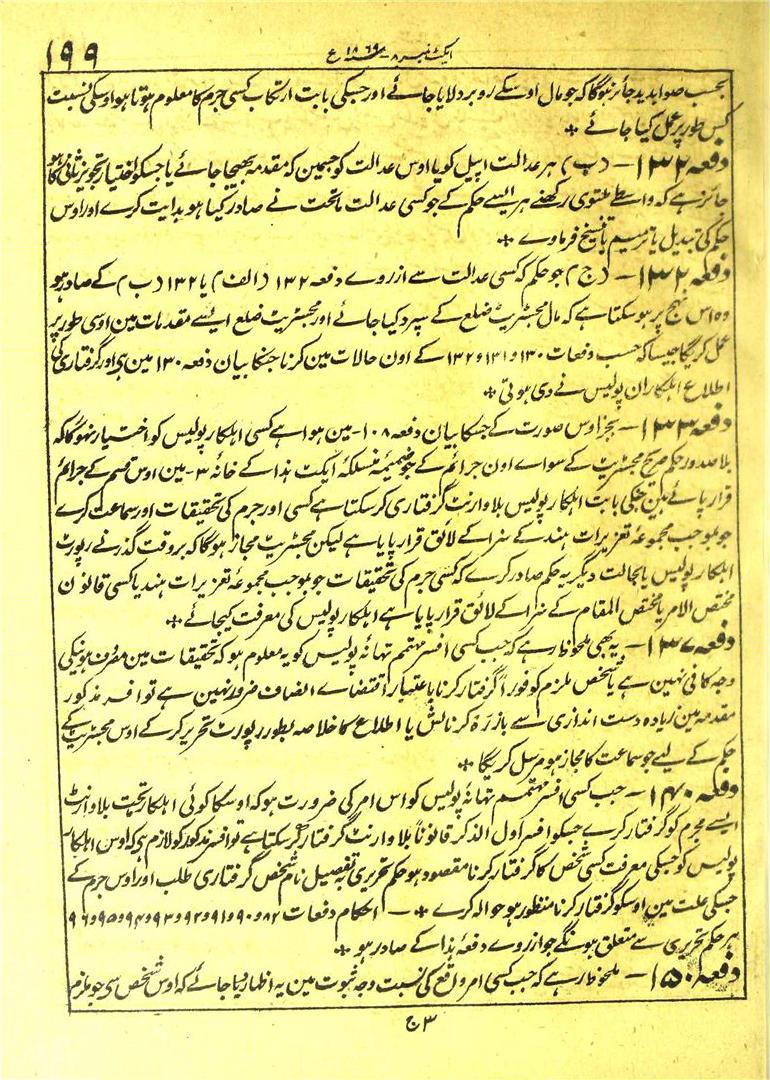 ۱۹۹
ایکٹ نمبر ۸ - سنہ ۱۸۶۹ ع
بحسب صوابدید جائز ہوگا کہ جو مال اوسکے روبرو لایا جائے اور جسکی بابت ارتکاب کسی جرم کا معلوم ہوتا ہو اوسکی نسبت
کس طور پر عمل کیا جائے *
دفعہ ۱۳۲ — (ب) ہر عدالت اپیل کو یا اوس عدالت کو جسمین کہ مقدمہ بھیجا جائے یا جسکو اختیار تجویز ثانی کا ہو
جائز ہے کہ واسطے ملتوی رکھنے ہر ایسے حکم کے جو کسی عدالت ماتحت نے صادر کیا ہو ہدایت کرے اور اوس
حکم کی تبدیل یا ترمیم یا تنسیخ فرماوے *
دفعہ ۱۳۲ — (ج) جو حکم کہ کسی عدالت سے ازروے دفعہ ۱۳۲ (الف) یا ۱۳۲ (ب) کے صادر ہو
وہ اس نہج پر ہو سکتا ہے کہ مال مجسٹریٹ ضلع کے سپرد کیا جائے اور مجسٹریٹ ضلع ایسے مقدمات مین اوسی طور پر
عمل کریگا جیسا کہ حسب دفعات ۱۳۰ و ۱۳۱ و ۱۳۲ کے اون حالات مین کرنا جنکا بیان دفعہ ۱۳۰ مین ہی اور گرفتاری کی
اطلاع اہلکاران پولیس نے دی ہوتی *
دفعہ ۱۳۳ — بجز اوس صورت کے جسکا بیان دفعہ ۱۰۸ - مین ہوا ہے کسی اہلکار پولیس کو اختیار نہوگا کہ
بلا صدور حکم صریح مجسٹریٹ کے سواے اون جرائم کے جو ضمیمہ منسلکہ ایکٹ ہذا کے خانہ ۳ - مین اوس قسم کے جرائم
قرار پائے ہین جنکی بابت اہلکار پولیس بلا وارنٹ گرفتاری کرسکتا ہے کسی اور جرم کی تحقیقات اور سماعت کرے
جو بموجب مجموعہ تعزیرات ہند کے سزا کے لائق قرار پایا ہے لیکن مجسٹریٹ مجاز ہوگا کہ بروقت گذرنے رپورٹ
اہلکار پولیس یا بحالت دیگر یہ حکم صادر کرے کہ کسی جرم کی تحقیقات جو بموجب مجموعہ تعزیرات ہند یا کسی قانون
مختص الامر یا مختص المقام کے سزا کے لائق قرار پایا ہے اہلکار پولیس کی معرفت کیجائے *
دفعہ ۱۳۷ — یہ بھی ملحوظ رہے کہ جب کسی افسر مہتمم تھانہ پولیس کو یہ معلوم ہو کہ تحقیقات مین مصروف ہونیکی
وجہ کافی نہین ہے یا شخص ملزم کو فوراً گرفتار کرنا باعتبار اقتضاے انصاف ضرور نہین ہے تو افسر مذکور
مقدمہ مین زیادہ دست اندازی سے باز رہ کر نالش یا اطلاع کا خلاصہ بطور رپورٹ تحریر کرکے اوس مجسٹریٹ کے
حکم کے لیے جو سماعت کا مجاز ہو مرسل کریگا *
دفعہ ۱۴۰ — جب کسی افسر مہتمم تھانہ پولیس کو اس امر کی ضرورت ہو کہ اوسکا کوئی اہلکار تحت بلا وارنٹ
ایسے مجرم کو گرفتار کرے جسکو افسر اول الذکر قانوناً بلا وارنٹ گرفتار کرسکتا ہے تو افسر مذکور کو لازم ہی کہ اوس اہلکار
پولیس کو جسکی معرفت کسی شخص کا گرفتار کرنا مقصود ہو حکم تحریری بتفصیل نام شخص گرفتاری طلب اور اوس جرم کے
جسکی علت مین اوسکو گرفتار کرنا منظور ہو حوالہ کرے * — احکام دفعات ۸۲ و ۹۰ و ۹۱ و ۹۲ و ۹۳ و ۹۴ و ۹۵ و ۹۶
ہر حکم تحریری سے متعلق ہونگے جو ازروے دفعہ ہذا کے صادر ہو *
دفعہ ۱۵۰ — ملحوظ رہے کہ جب کسی امر واقع کی نسبت وجہ ثبوت مین یہ اظہار دیا جائے کہ اوس شخص سی جو ملزم
ج ۳